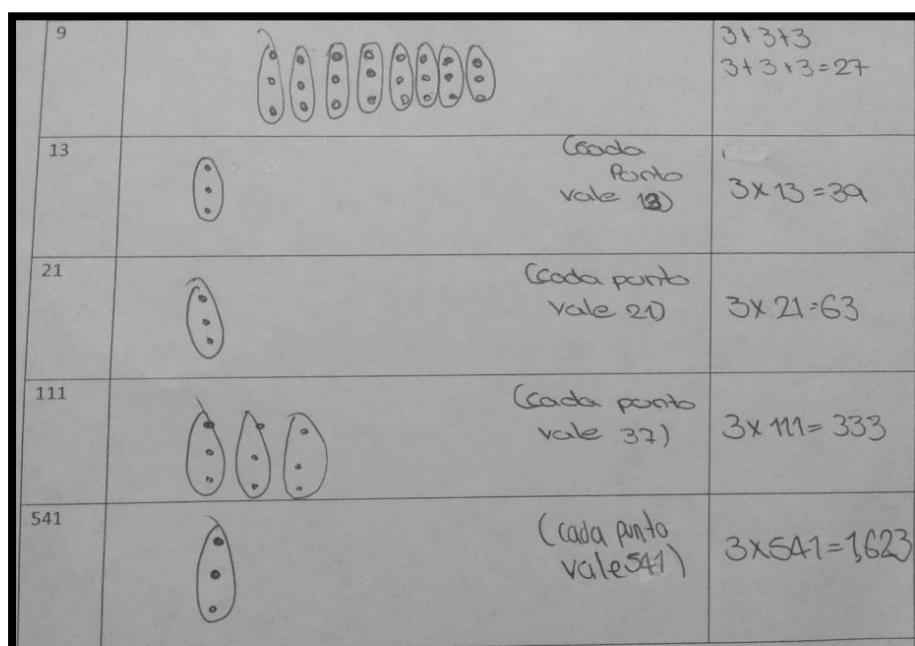 9
3+3+3
3+3+3=27
13
(cada
Punto
vale 13)
3x13=39
21
(cada punto
vale 21)
3x21=63
111
(cada punto
vale 37)
3x111=333
541
(cada punto
vale 541)
3x541=1,623